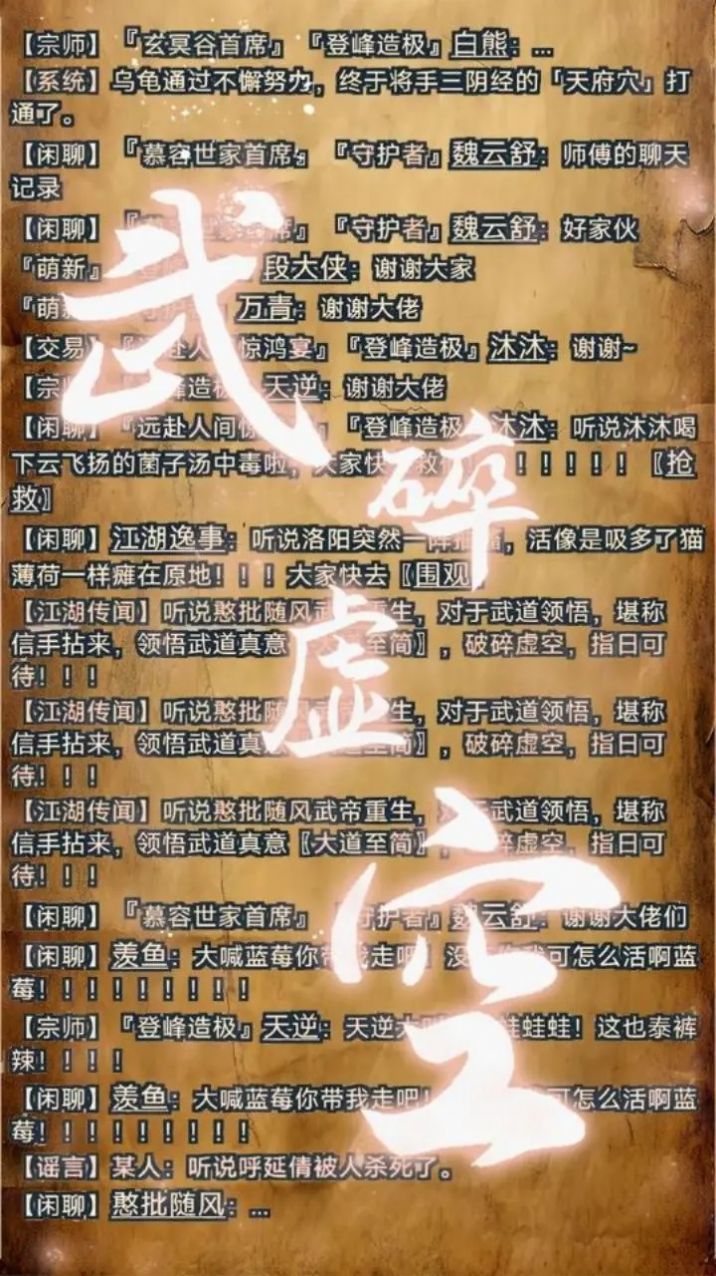 【宗师】『玄冥谷首席』『登峰造极』白熊：...
【系统】乌龟通过不懈努力，终于将手三阴经的「天府穴」打
通了。
【闲聊】『慕容世家首席』『守护者』魏云舒：师傅的聊天
记录
【闲聊】『世家首席』『守护者』魏云舒：好家伙
『萌新』段大侠：谢谢大家
『萌 万青：谢谢大佬
【交易】人 惊鸿宴』『登峰造极』沐沐：谢谢~
【宗 峰造极 天逆：谢谢大佬
【闲 『远赴人间惊 『登峰造极 沐沐：听说沐沐喝
下云飞扬的菌子汤中毒啦，大家快 救 ！！！！！！〖抢
救〗
【闲聊】江湖逸事：听说洛阳突然一阵 ，活像是吸多了猫
薄荷一样瘫在原地！！！大家快去〖围观
【江湖传闻】听说憨批随风武帝重生，对于武道领悟，堪称
信手拈来，领悟武道真意 至简〗，破碎虚空，指日可
待！！！
【江湖传闻】听说憨批随 生，对于武道领悟，堪称
信手拈来，领悟武道真意 道至简〗，破碎虚空，指日可
待！！！
【江湖传闻】听说憨批随风武帝重生，对于武道领悟，堪称
信手拈来，领悟武道真意〖大道至简〗，碎虚空，指日可
待！！！
【闲聊】『慕容世家首席』守护者』魏云舒：谢谢大佬们
【闲聊】羡鱼：大喊蓝莓你带我走吧 没 可怎么活啊蓝
莓！！！！！！！！！
【宗师】『登峰造极』天逆：天逆大 哇蛙蛙！这也泰裤
辣！！！！
【闲聊】羡鱼：大喊蓝莓你带我走吧！ 可怎么活啊蓝
莓！！！！！！！！！
【谣言】某人：听说呼延倩被人杀死了。
【闲聊】憨批随风：...
武
碎
虚
空